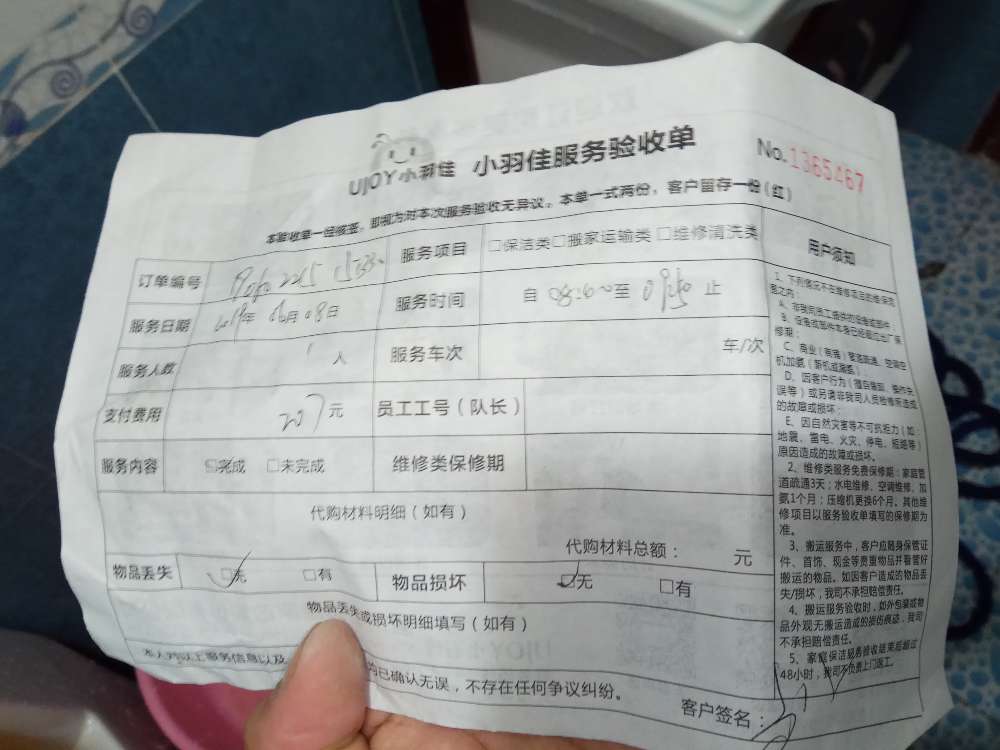 UJOY小羽佳 小羽佳服务验收单
No.1365467
本验收单一经核签，即视为对本次服务验收无异议。本单一式两份，客户留存一份（红）
订单编号
服务项目 □保洁类□搬家运输类□维修清洗类
服务日期 2019年 06月 08日
服务时间 自 至 止
服务人数 1 人
服务车次 车/次
支付费用 207元
员工工号（队长）
服务内容 □完成 □未完成
维修类保修期
代购材料明细（如有）
代购材料总额： 元
物品丢失 □无 □有
物品损坏 □无 □有
物品丢失或损坏明细填写（如有）
本人对以上服务信息以及
的已确认无误，不存在任何争议纠纷。
客户签名：
用户须知
1、下列情况不在维修项目的维保范
者之内：
A、非我司员工提供的设备或部件；
B、设备或部件本身已经超过出厂保
修期；
C、商业（商铺）管道疏通、空调空
机加氨（新机或漏氨）；
D、因客户行为（擅自修回、操作失
误等）或另请非我司人员检修所造成
的故障或损坏；
E、因自然灾害等不可抗拒力（如：
地震、雷电、火灾、停电、短路等）
原因造成的故障或损坏。
2、维修类服务免费保修期：家庭管
道疏通3天；水电维修、空调维修、加
氨1个月；压缩机更换6个月。其他维
修项目以服务验收单填写的保修期为
准。
3、搬运服务中，客户应随身保管证
件、首饰、现金等贵重物品并看管好
搬运的物品。如因客户造成的物品丢
失/损坏，我司不承担赔偿责任。
4、搬运服务验收时，如外包装或物
品外观无搬运造成的损伤痕迹，我司
不承担赔偿责任。
5、家庭保洁服务验收结束后超过
48小时，我司不负责上门返工。